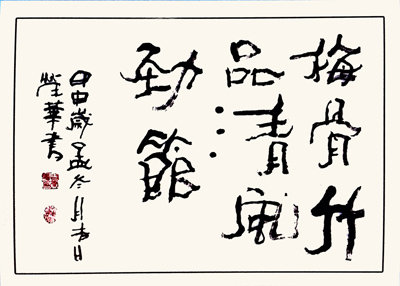 梅骨竹
品清風
勁節
甲申歲孟冬月吉日
瑩華書